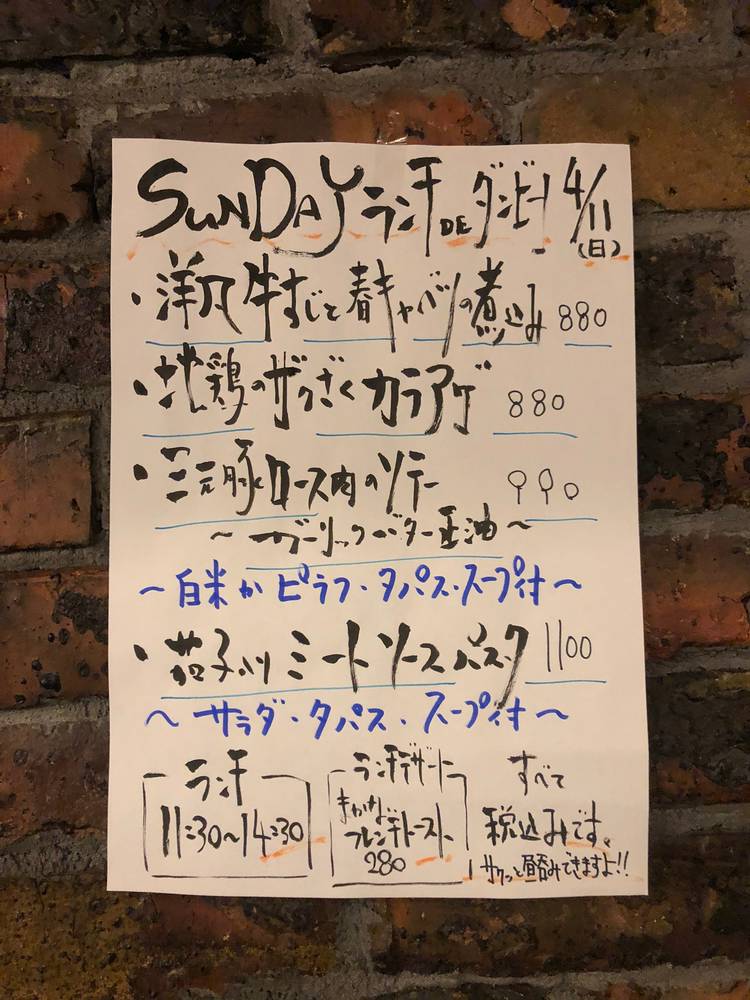 SUNDAY ランチ DE ダンビー 4/11(日)
・洋風牛すじと春キャベツの煮込み 880
・地鶏のザクざくカラアゲ 880
・三元豚ロース肉のソテー 990
～ガーリックバター正油～
～白米かピラフ・タパス・スープ付～
・茄子入りミートソースパスタ 1100
～サラダ・タパス・スープ付～
ランチ
11:30～14:30
ランチデザート
フレンチトースト
280
すべて
税込みです。
サクッと昼呑みできますよ!!